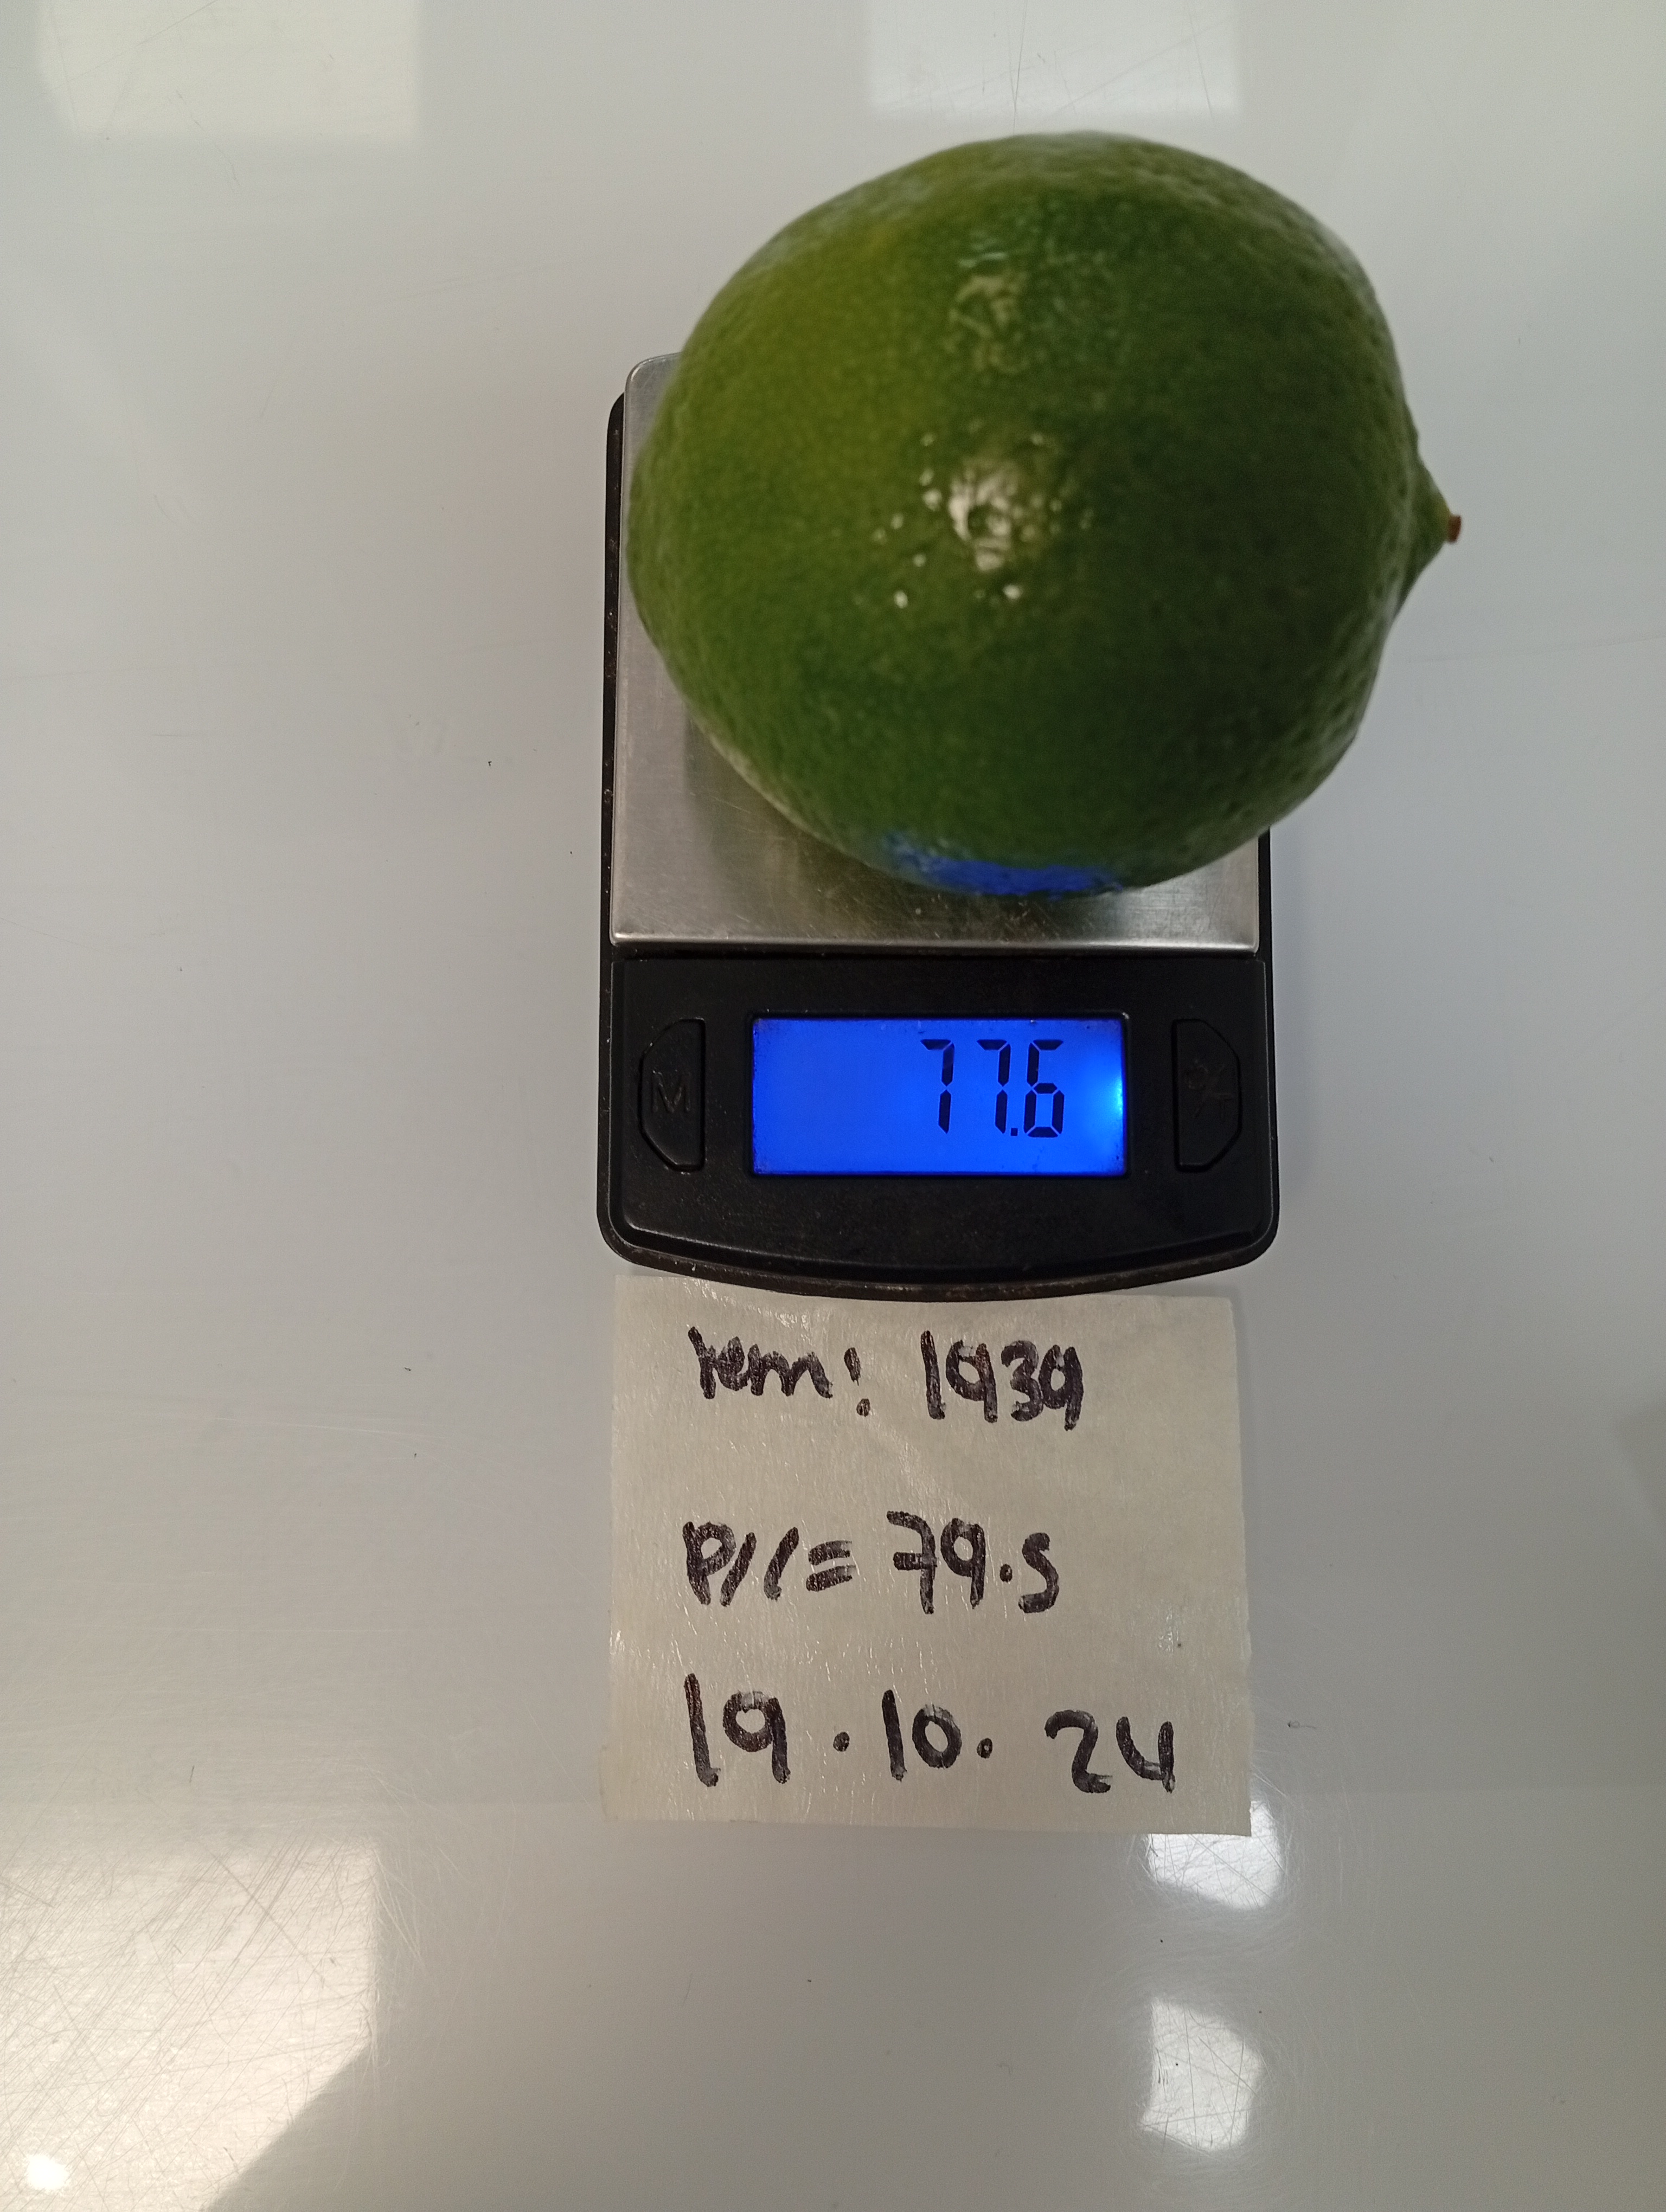 77.6
M
rem: 1939
P//= 79.5
19.10.24